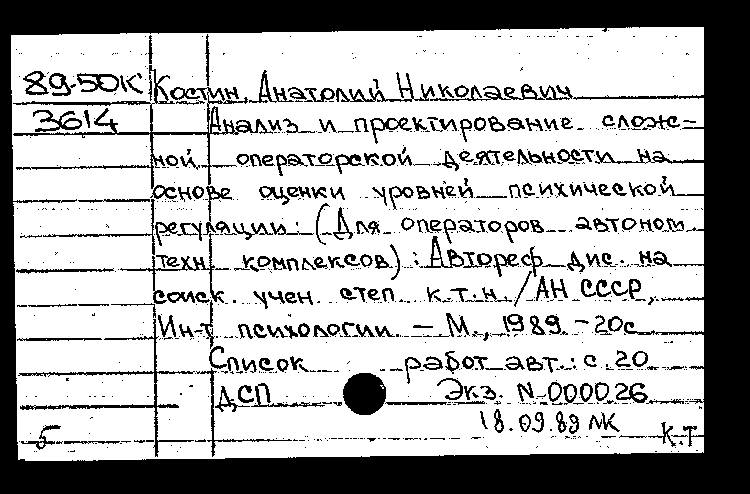 89-50К Костин, Анатолий Николаевич
3614 Анализ и проектирование слож-
ной операторской деятельности на
основе оценки уровней психической
регуляции: (Для операторов автоном.
техн. комплексов): Автореф. дис. на
соиск. учен. степ. к.т.н. / АН СССР,
Ин-т психологии. – М., 1989. – 20с
Список работ авт.: с. 20.
ДСП Экз. N 000026
18.09.89 ЛК
5 К.Т